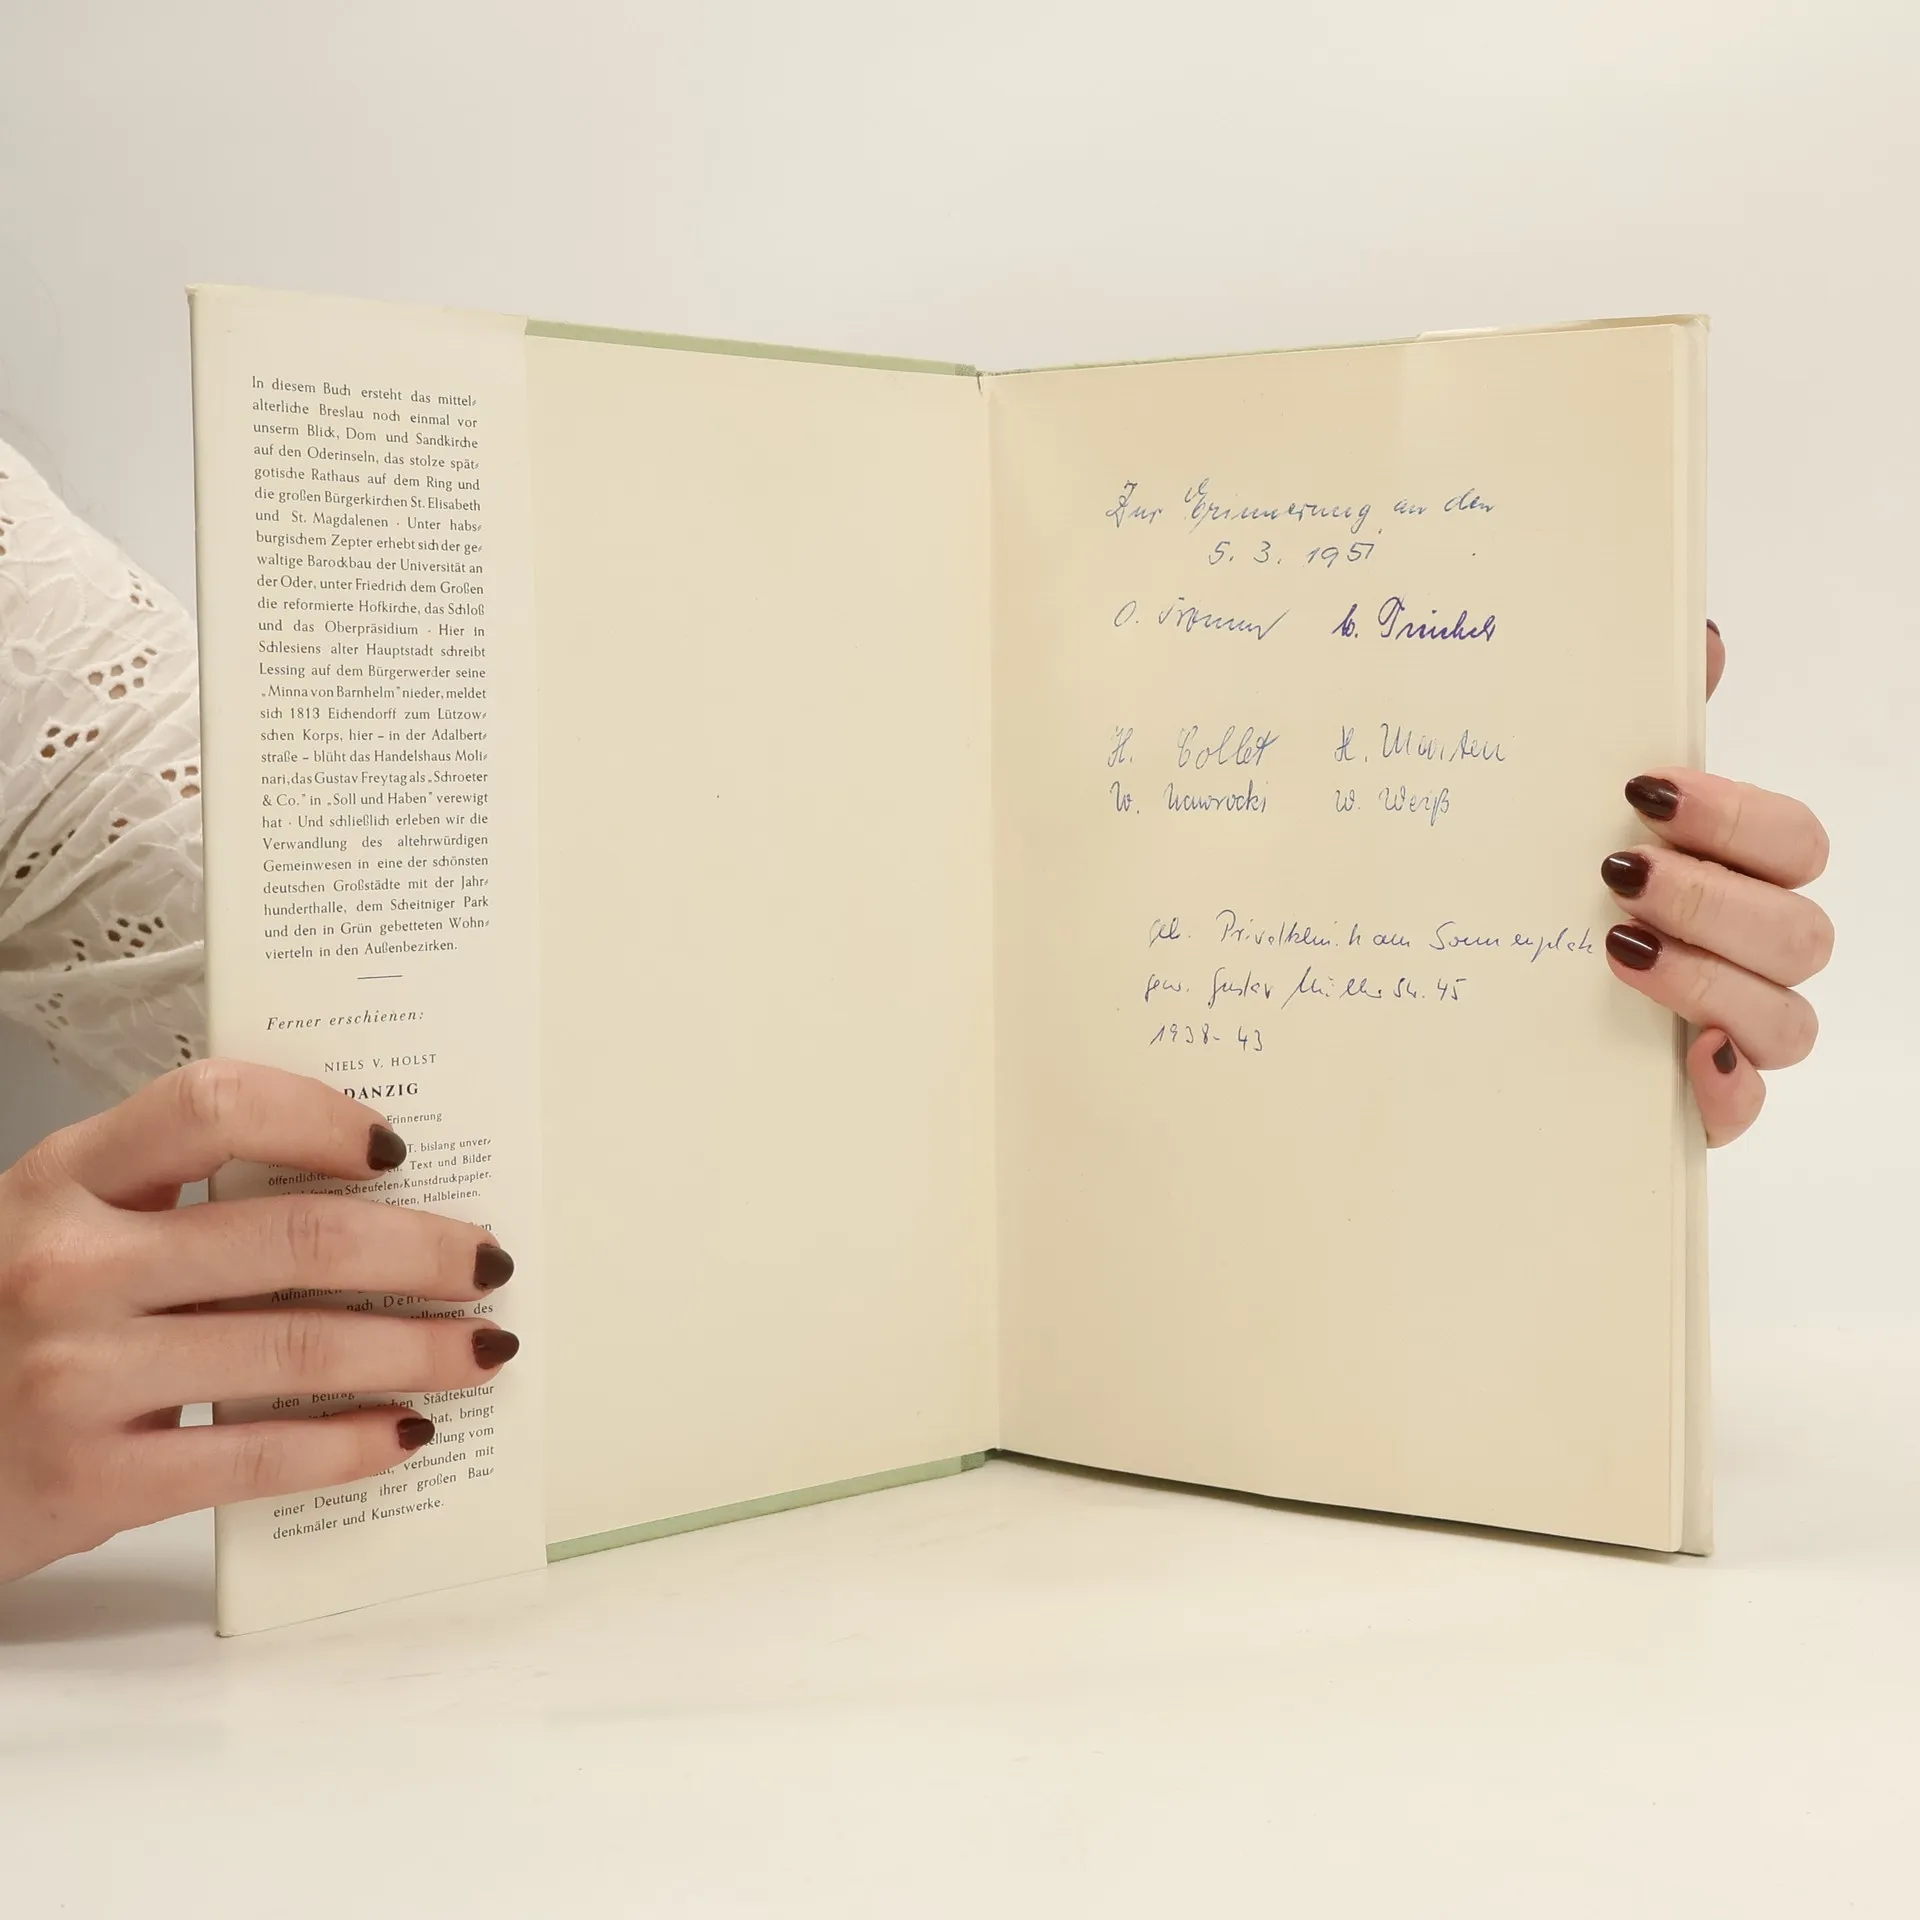 In diesem Buch ersteht das mittel-
alterliche Breslau noch einmal vor
unserm Blick, Dom und Sandkirche
auf den Oderinseln, das stolze spät-
gotische Rathaus auf dem Ring und
die großen Bürgerkirchen St. Elisabeth
und St. Magdalenen · Unter habs-
burgischem Zepter erhebt sich der ge-
waltige Barockbau der Universität an
der Oder, unter Friedrich dem Großen
die reformierte Hofkirche, das Schloß
und das Oberpräsidium · Hier in
Schlesiens alter Hauptstadt schreibt
Lessing auf dem Bürgerwerder seine
„Minna von Barnhelm" nieder, meldet
sich 1813 Eichendorff zum Lützow-
schen Korps, hier – in der Adalbert-
straße – blüht das Handelshaus Moli-
nari, das Gustav Freytag als „Schroeter
& Co." in „Soll und Haben" verewigt
hat · Und schließlich erleben wir die
Verwandlung des altehrwürdigen
Gemeinwesen in eine der schönsten
deutschen Großstädte mit der Jahr-
hunderthalle, dem Scheitniger Park
und den in Grün gebetteten Wohn-
vierteln in den Außenbezirken.
Ferner erschienen:
NIELS V. HOLST
DANZIG
Erinnerung
T. bislang unver-
Text und Bilder
Scheufelen-Kunstdruckpapier.
Seiten, Halbleinen.
nach
des
chen Städtekultur
hat, bringt
vom
verbunden mit
einer Deutung ihrer großen Bau-
denkmäler und Kunstwerke.
Zur Erinnerung an den
5. 3. 1957
O. b.
H. Collet H. Marten
W. Nawrocki W. Weiß
geb. Privatklinik am Sonnenplatz
gew. Gustav Müller Str. 45
1938-43